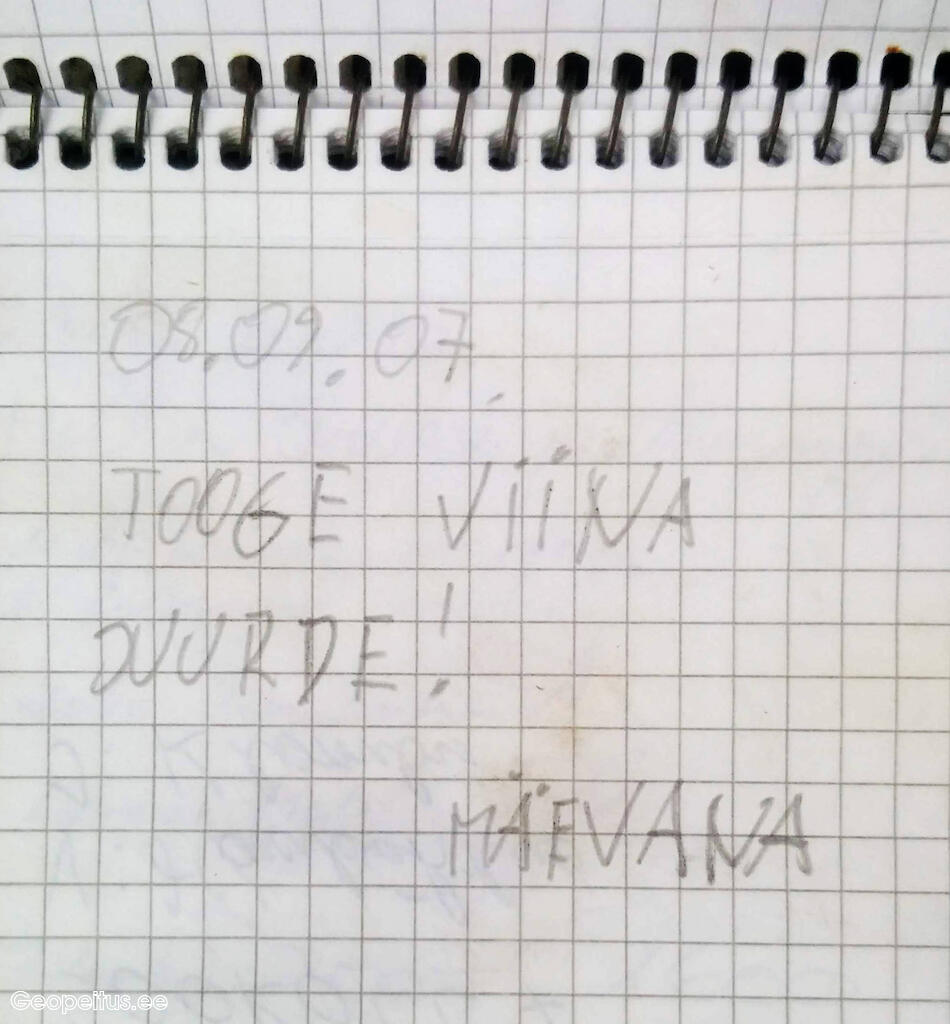 08.09.07.
TOOGE VIINA
JUURDE!
MÄEVANA
Geopeitus.ee